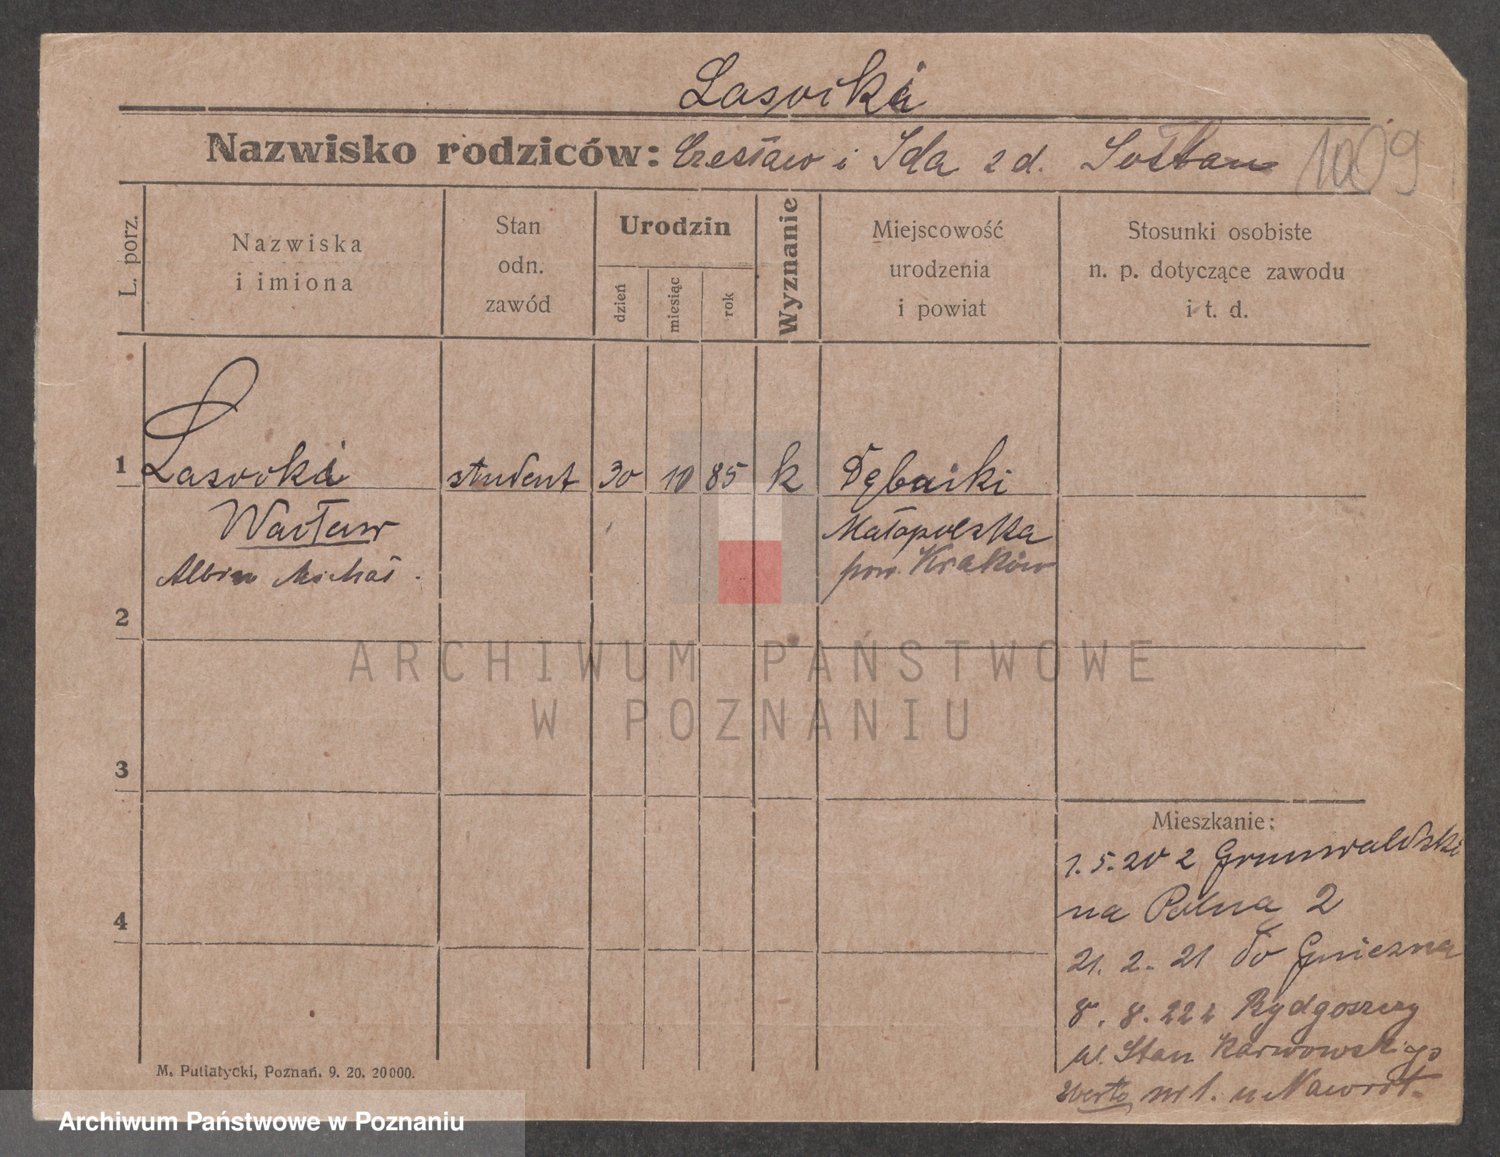 Lasocki
Nazwisko rodziców: Czesław i Ida z d. Sołtan 1009
L. porz.
Nazwiska
i imiona
Stan
odn.
zawód
Urodzin
dzień
miesiąc
rok
Wyznanie
Miejscowość
urodzenia
i powiat
Stosunki osobiste
n. p. dotyczące zawodu
i t. d.
1 Lasocki student 30 10 85 k Dębniki
Wacław Małopolska
Albin Michał pow. Kraków
2
3
4
Mieszkanie:
1.5.20 z Grunwaldzki
na Polna 2
21.2.21 do Gniezna
8.8.22 z Bydgoszczy
ul. Stan Karwowskiego
nr 1. u Nawrot.
M. Putiatycki, Poznań. 9. 20. 20000.
ARCHIWUM PAŃSTWOWE
W POZNANIU
Archiwum Państwowe w Poznaniu